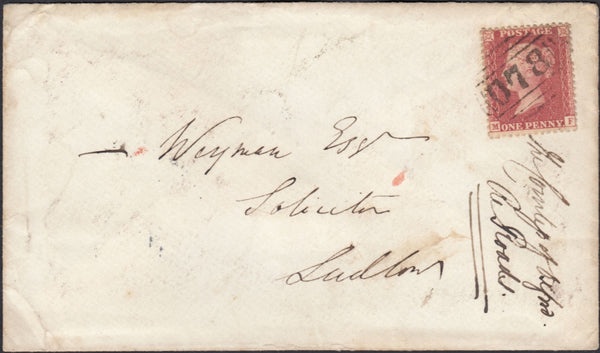 POSTAGE
D78
M F
ONE PENNY
Weyman Esqr
Solicitor
Ludlow
Roads.